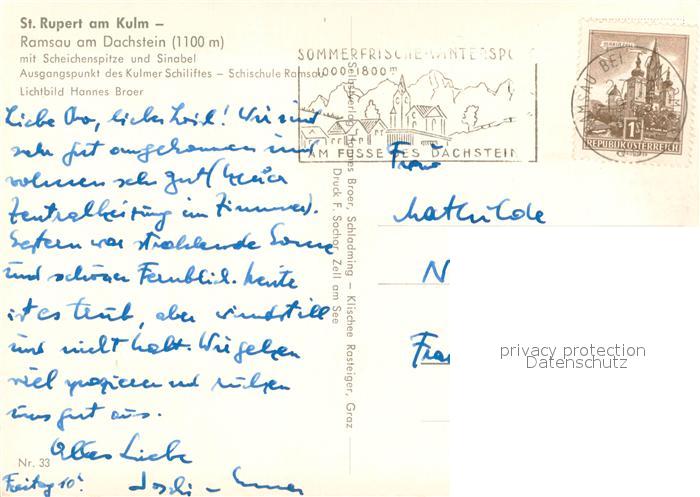 St. Rupert am Kulm –
Ramsau am Dachstein (1100 m)
mit Scheichenspitze und Sinabel
Ausgangspunkt des Kulmer Schiliftes – Schischule Ramsau
Lichtbild Hannes Broer
Liebe liebes Wir sind
sehr gut angekommen und
wohnen sehr gut
Zentralheizung im Zimmer).
Gestern war strahlende Sonne
und schöner Fernblick. Heute
ist es trüb, aber windstill
und nicht kalt. Wir gehen
viel spazieren und ruhen
uns gut aus.
Alles Liebe
Nr. 33
Freitag 10h
Selbstverlag Hannes Broer, Schladming – Klischee Rasteiger, Graz
Druck F. Sochor Zell am See
SOMMERFRISCHE-WINTERSPO
1000-1800m
AM FUSSE DES DACHSTEIN
RAMSAU BEI
1S
REPUBLIK ÖSTERREICH
Frau
Mathilde
N
Fra
privacy protection
Datenschutz